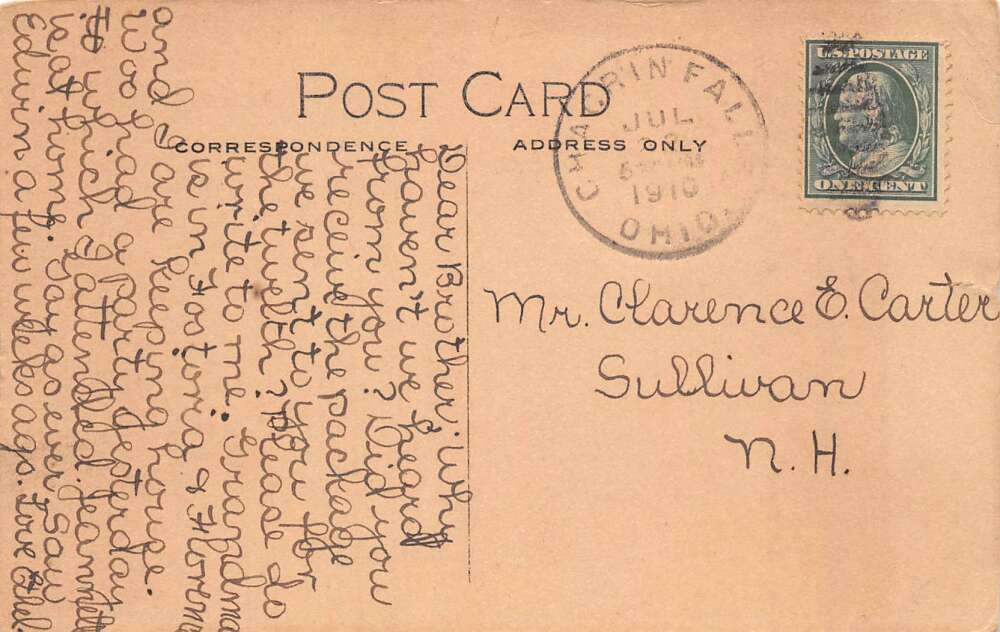 POST CARD
CORRESPONDENCE
ADDRESS ONLY
CHAGRIN FALLS
JUL
1910
OHIO.
U.S. POSTAGE
ONE CENT
Mr. Clarence E. Carter
Sullivan
N. H.
Dear Brother: Why
haven't we heard
from you? Did you
receive the package
we sent to you for
the twelth? Please do
write to me. Grandma
is in Fostoria & Florence
and I are keeping house.
Woo had a party yesterday
to which I attended. Jeannette
is at home. Gay as ever. Saw
Edwin a few weeks ago. Love Ethel.